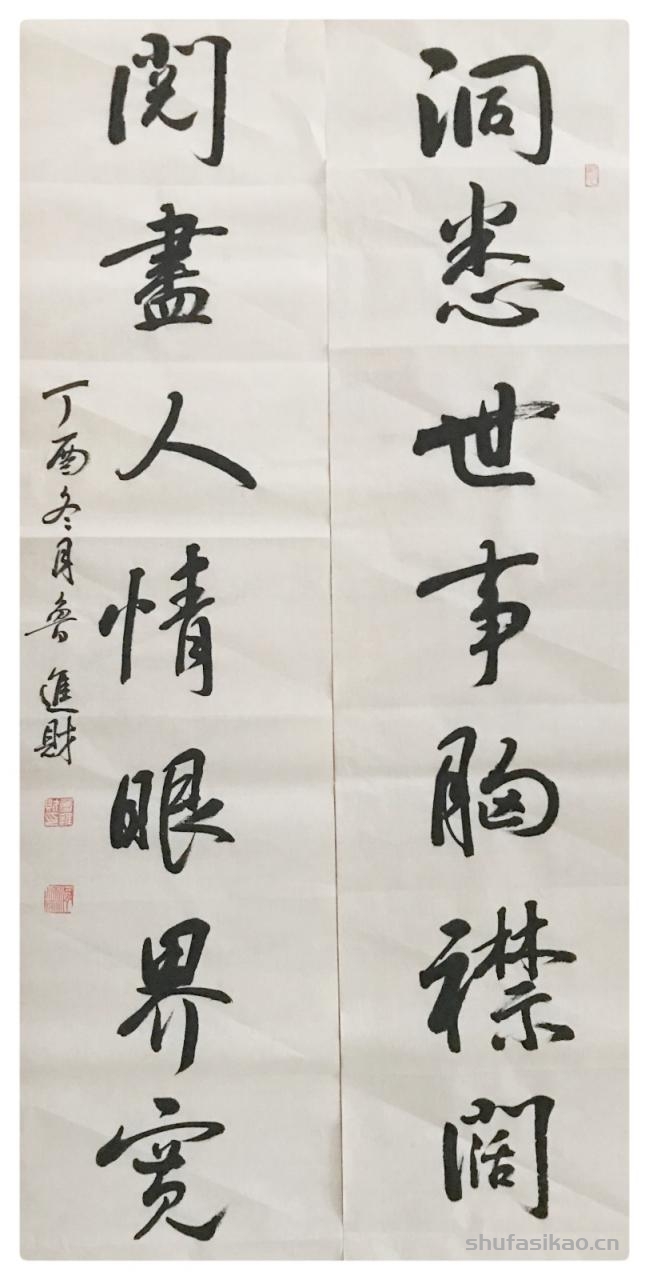 洞悉世事胸襟闊
閱盡人情眼界寬
丁酉冬月魯進財
shufasikao.cn